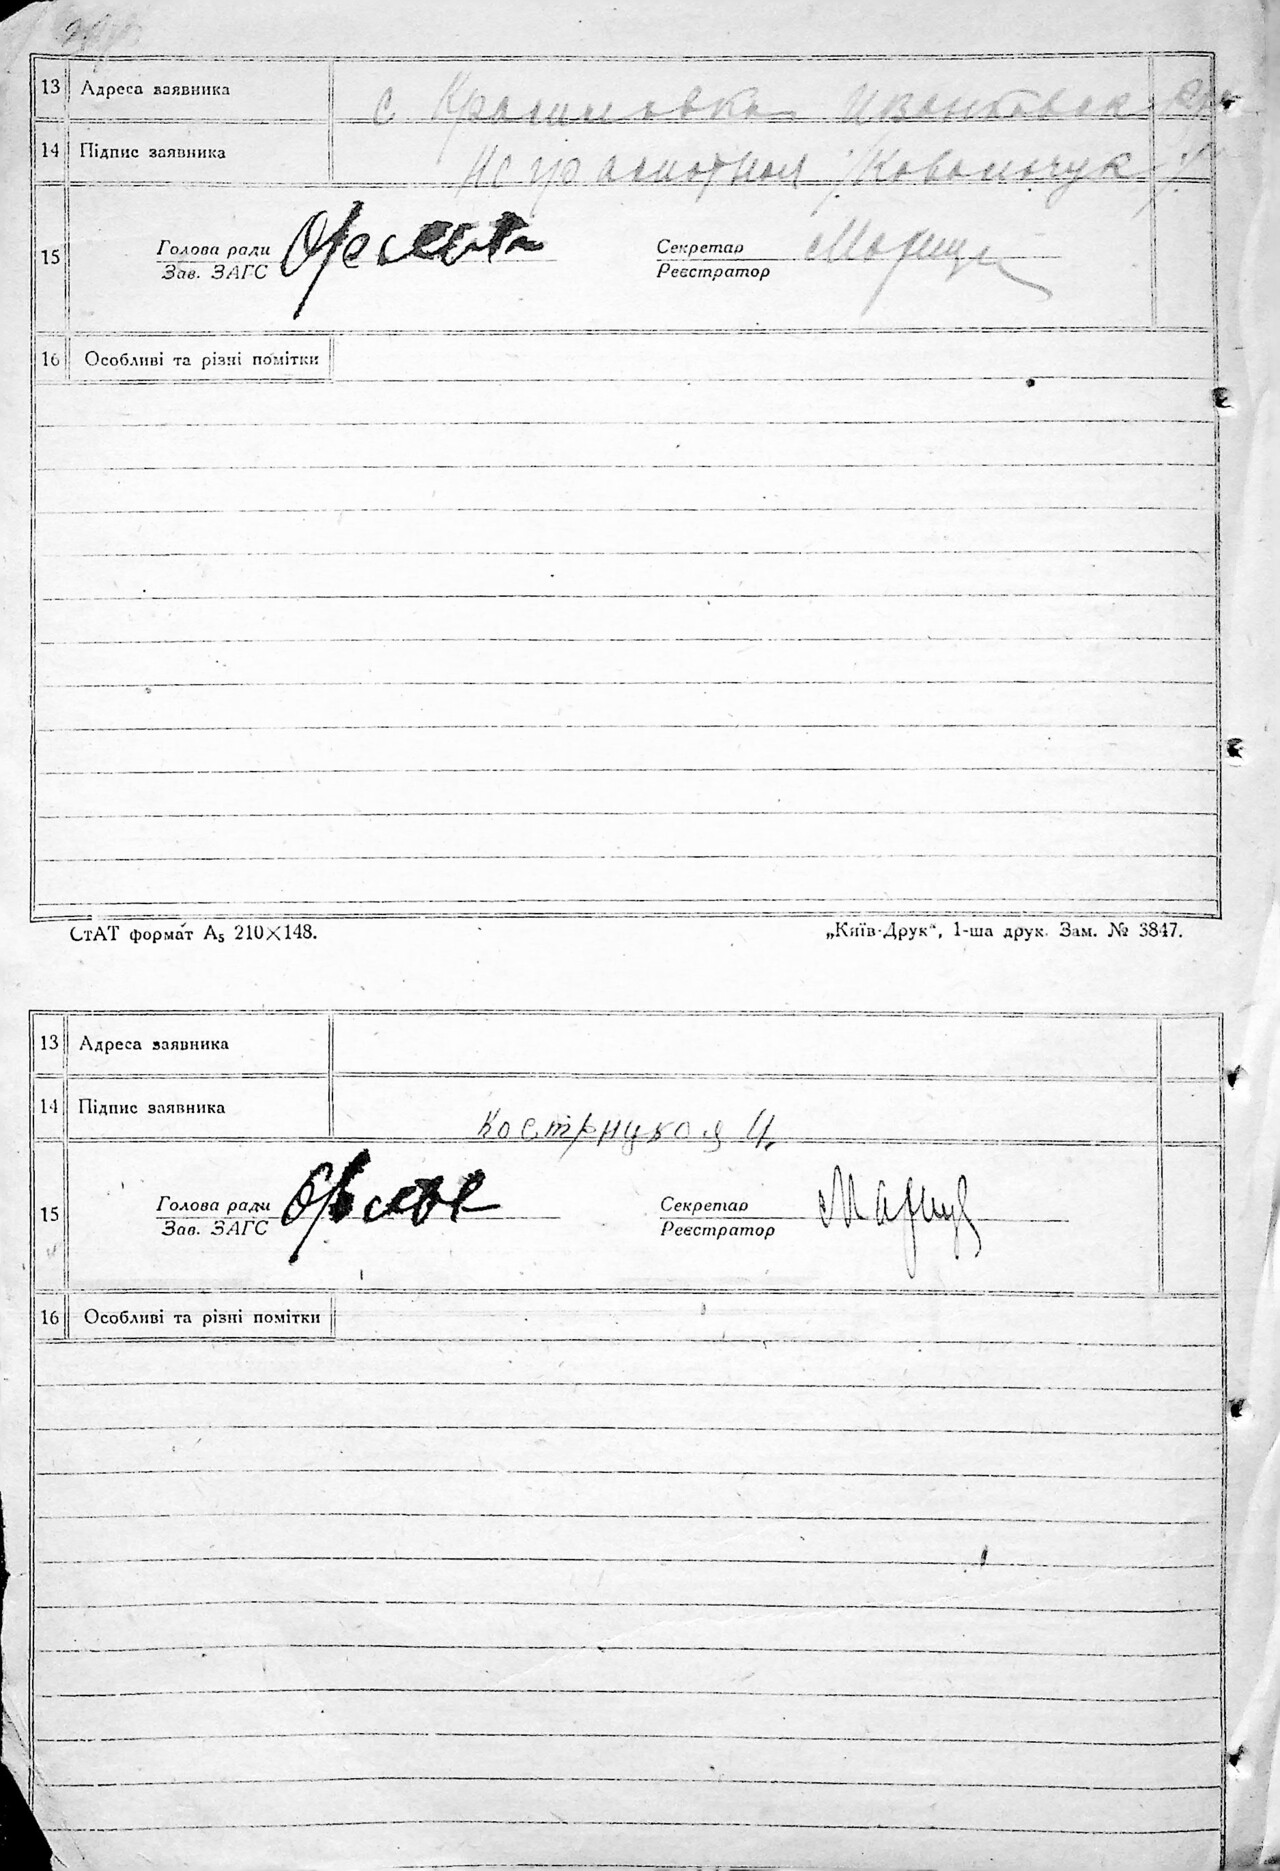 13 Адреса заявника с Красиловка Иванковск
14 Підпис заявника Неграмотная /Ковальчук/
15 Голова ради Секретар
Зав. ЗАГС Реєстратор
16 Особливі та різні помітки
СтАТ формат А₅ 210×148. „Київ-Друк“, 1-ша друк. Зам. № 3847.
13 Адреса заявника
14 Підпис заявника Кострицкая И.
15 Голова ради Секретар
Зав. ЗАГС Реєстратор
16 Особливі та різні помітки